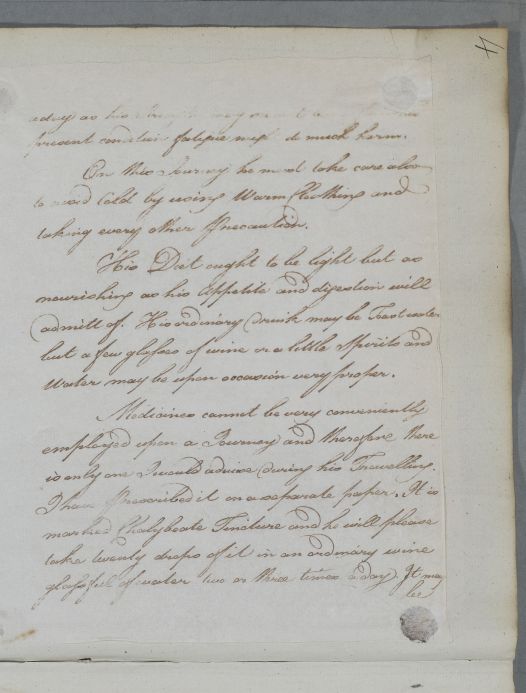 4
aday as his Strength may
present condition fatigue might do much harm.
On this Journey he must take care also
to avoid Cold by using Warm Clothing and
taking every other Precaution.
His Diet ought to be light but as
nourishing as his Appetite and digestion will
admitt of. His ordinary drink may be Toast water
but a few glasses of wine or a little Spirits and
Water may be upon occasion very proper.
Medicines cannot be very conveniently
employed upon a Journey and therefore there
is only one I would advise during his Travelling.
I have Prescribed it on a separate paper. It is
marked Chalybeate Tincture and he will please
take twenty drops of it in an ordinary wine
glassful of water two or three times a day. It may
be